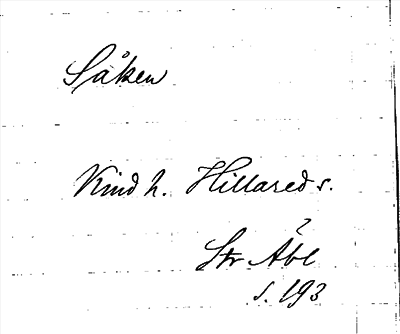 Såken
Kind h. Hillared s.
Str Åbl
s. 193